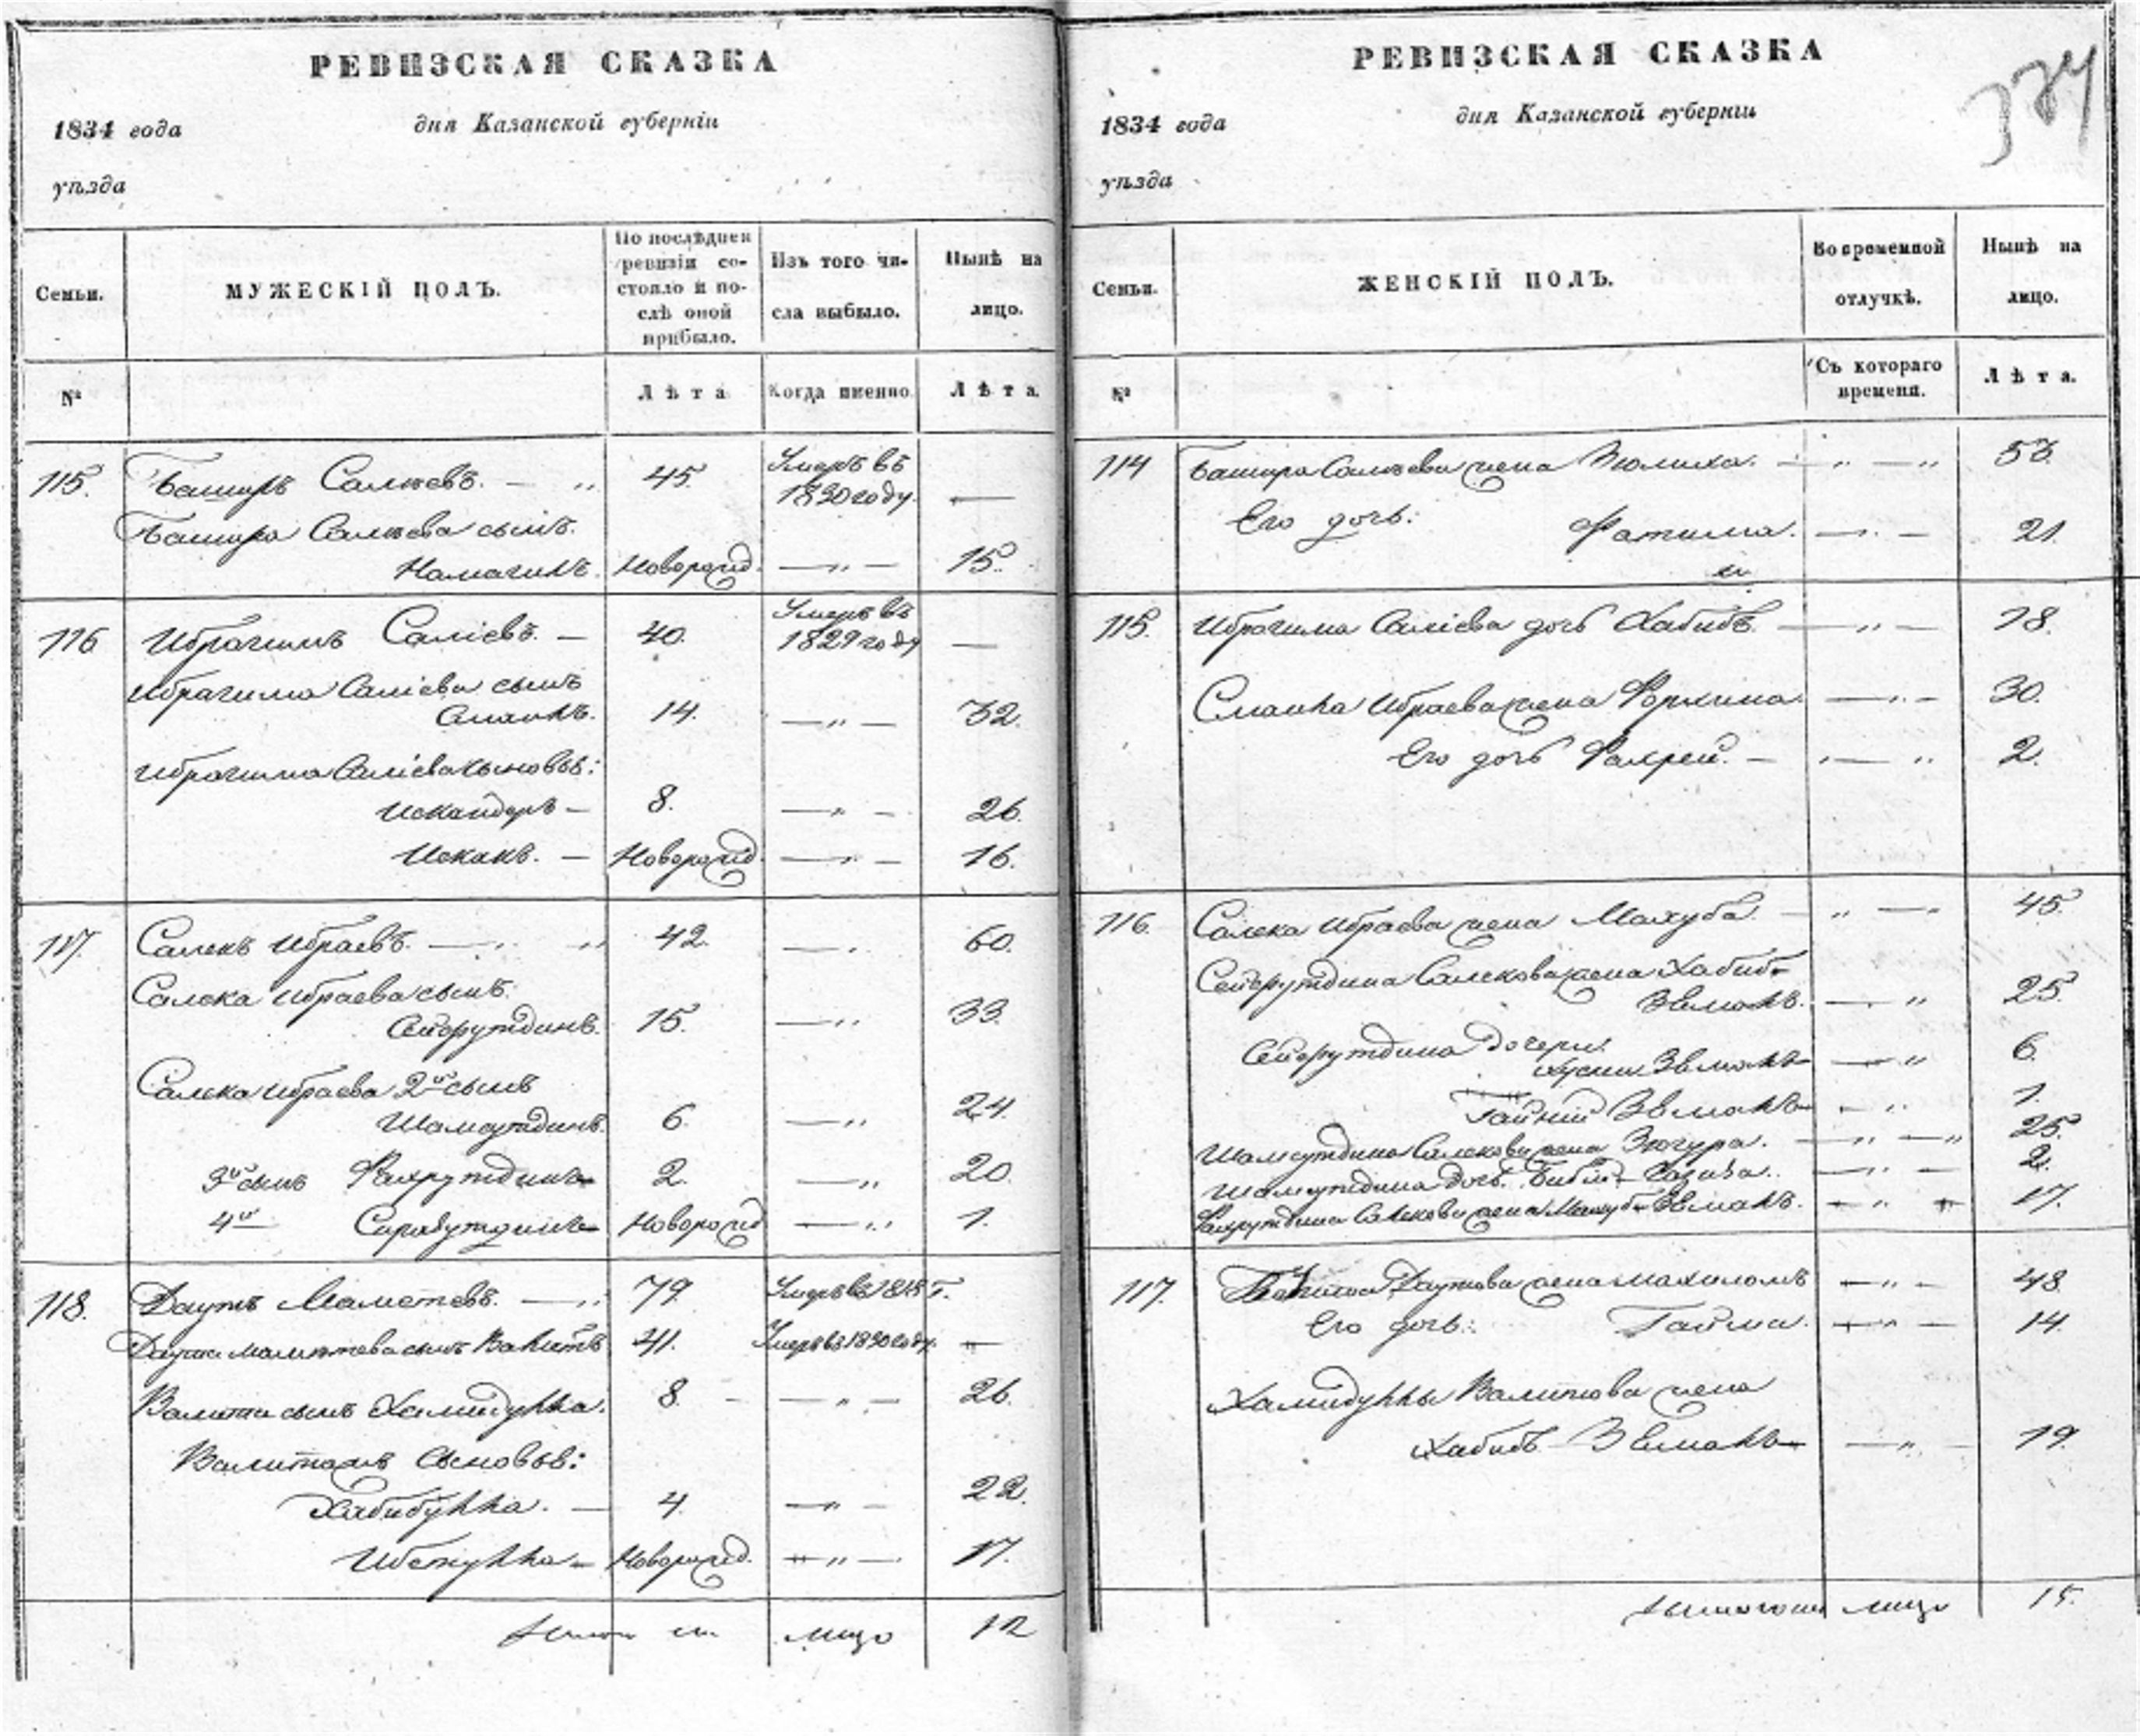 РЕВИЗСКАЯ СКАЗКА
1834 года дня Казанской губерніи
уѣзда
Семьи.
МУЖЕСКІЙ ПОЛЪ.
По послѣдней ревизіи состояло и послѣ оной прибыло.
Изъ того числа выбыло.
Нынѣ на лицо.
№
Лѣта
Когда именно
Лѣта.
115. Баширъ Салеевъ. 45. Умеръ въ 1830 году. —
Башира Салеева сынъ
Новорожд. — „ — 15.
116 Ибрагимъ Саліевъ. — 40. Умеръ въ 1829 году —
Ибрагима Саліева сынъ
Смаилъ. 14. — „ — 32.
Ибрагима Саліева сыновья:
Искандеръ — 8. — „ — 26.
Исхакъ. — Новорожд. — „ — 16.
117. Салекъ Ибраевъ. 42. — „ 60.
Салека Ибраева сынъ
Сейфутдинъ. 15. — „ 33.
Салека Ибраева 2й сынъ
Шамсутдинъ. 6. — „ 24.
3й сынъ Фахрутдинъ 2. — „ 20.
4й Новорожд — „ 1.
118. Даутъ Маметевъ. — „ 79. Умеръ въ 1818 г.
Даута Маметева сынъ Валитъ 41. Умеръ въ 1830 году. —
Валита сынъ Хамидулла. 8. — „ — 26.
Валита сыновья:
Хабибулла. — 4. — „ — 22.
Новорожд. — „ — 17.
лицо 12
РЕВИЗСКАЯ СКАЗКА
374
1834 года дня Казанской губерніи
уѣзда
Семьи.
ЖЕНСКІЙ ПОЛЪ.
Во временной отлучкѣ.
Нынѣ на лицо.
№
Съ котораго времени.
Лѣта.
114 Башира Салеева жена Зюлиха. — „ — „ 53.
Его дочь: Фатима. — „ — 21.
115. Ибрагима Саліева дочь Хабибѣ. — „ — 18.
Смаила Ибраева жена — „ — 30.
Его дочь — „ 2.
116. Салека Ибраева жена Махуба. — „ — „ 45.
Сейфутдина Салекова жена Хабиб
Земалъ. — „ 25.
Сейфутдина дочери:
Хусни Земалъ — „ 6.
Земалъ — „ 1.
Шамсутдина Салекова жена Зюгура. — „ — „ 25.
Шамсутдина дочь Биби — „ — 2.
Фахрутдина Салекова жена Махуб Земалъ. — „ — 17.
117. Даутова жена — „ — 48.
Его дочь: — „ — 14.
Хамидуллы Валитова жена
Хабиб Земалъ — „ — 19.
лицо 15.